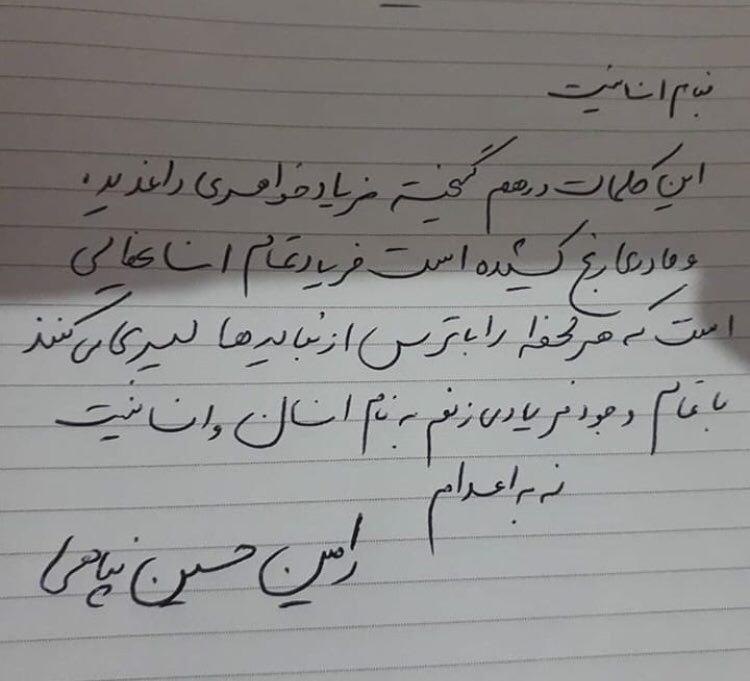 بنام انسانیت
این کلمات درهم گسیخته فریاد خواهری داغدیده
و مادری رنج کشیده است فریاد تمام انسانهایی
است که هر لحظه را با ترس از نبایدها سپری می کنند
با تمام وجود فریاد می زنم به نام انسان و انسانیت
نه به اعدام
رامین حسین پناهی